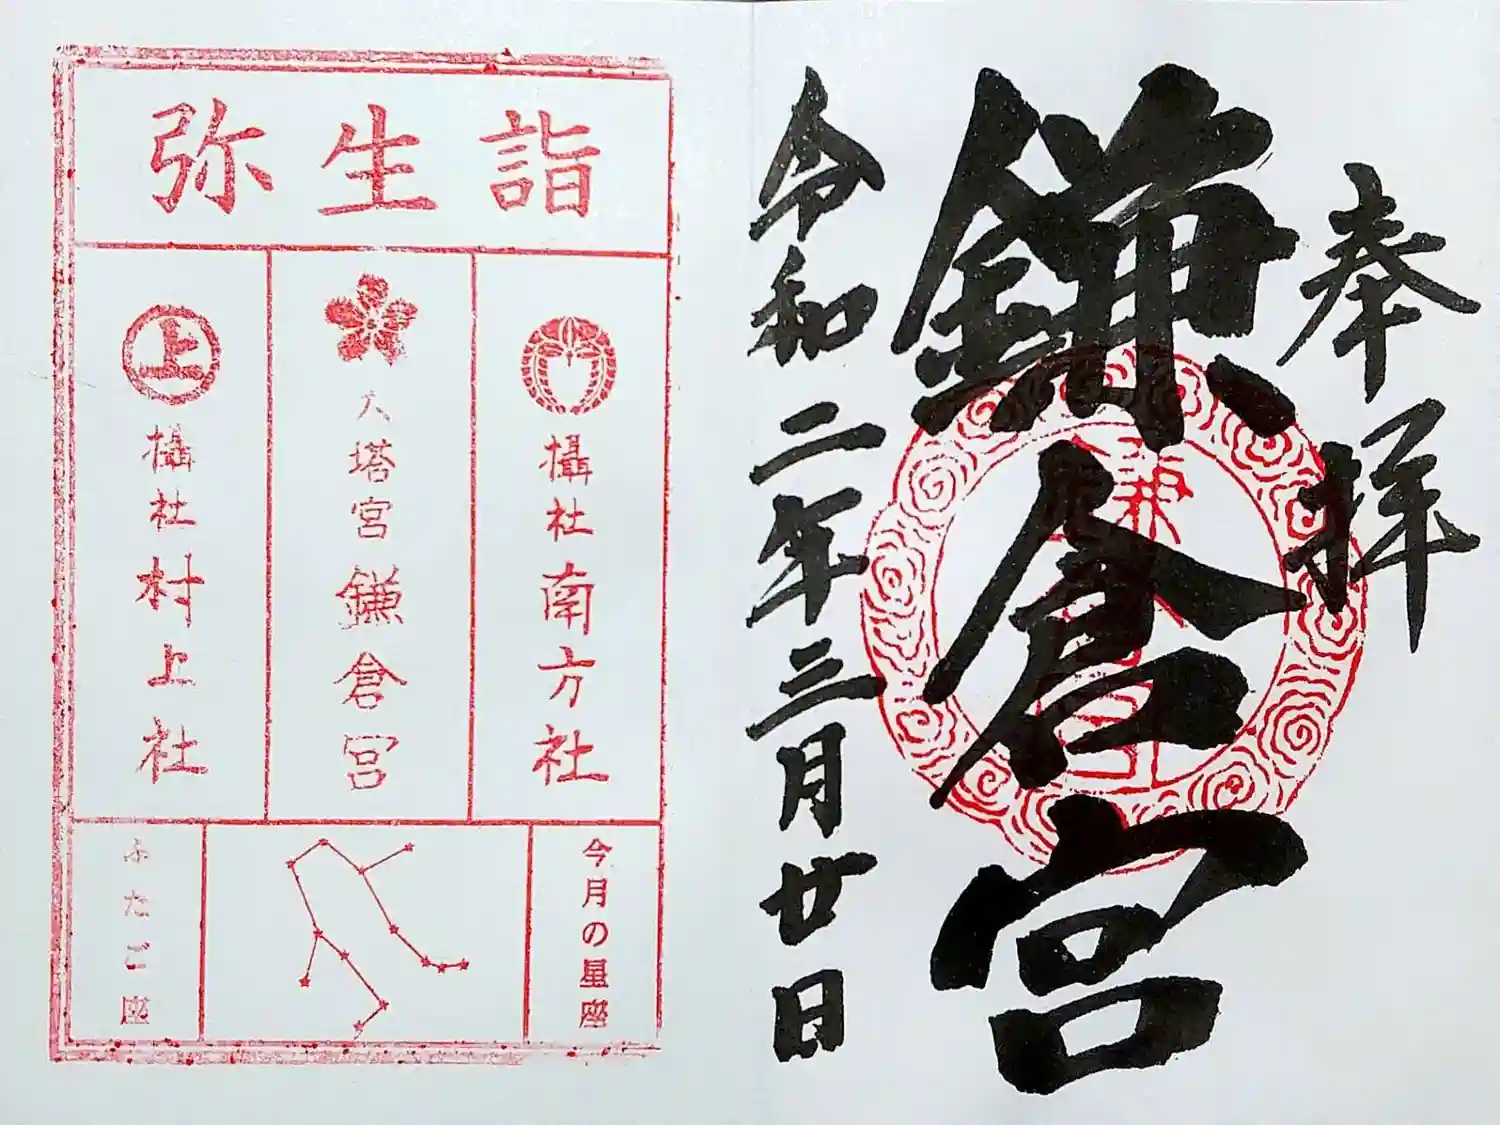 奉拝
鎌倉宮
令和二年三月廿日
弥生詣
攝社南方社
大塔宮鎌倉宮
上
攝社村上社
今月の星座
ふたご座